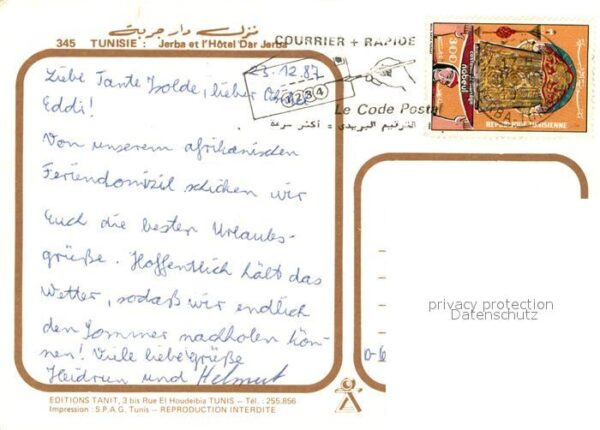 منزل دار جربة
345 TUNISIE : Jerba et l'Hôtel Dar Jerba
COURRIER + RAPIDE
1234
Le Code Postal
الترقيم البريدي = أكثر سرعة
300
nabeul
REPUBLIQUE TUNISIENNE
25.12.87
Liebe Tante Isolde, lieber Onkel
Eddi!
Von unserem afrikanischen
Feriendomizil schicken wir
Euch die besten Urlaubs-
grüße. Hoffentlich hält das
Wetter, sodaß wir endlich
den Sommer nachholen kön-
nen! Viele liebe Grüße
Heidrun und Helmut
privacy protection
Datenschutz
EDITIONS TANIT, 3 bis Rue El Houdeibia TUNIS - Tél. : 255.856
Impression : S.P.A.G. Tunis - REPRODUCTION INTERDITE